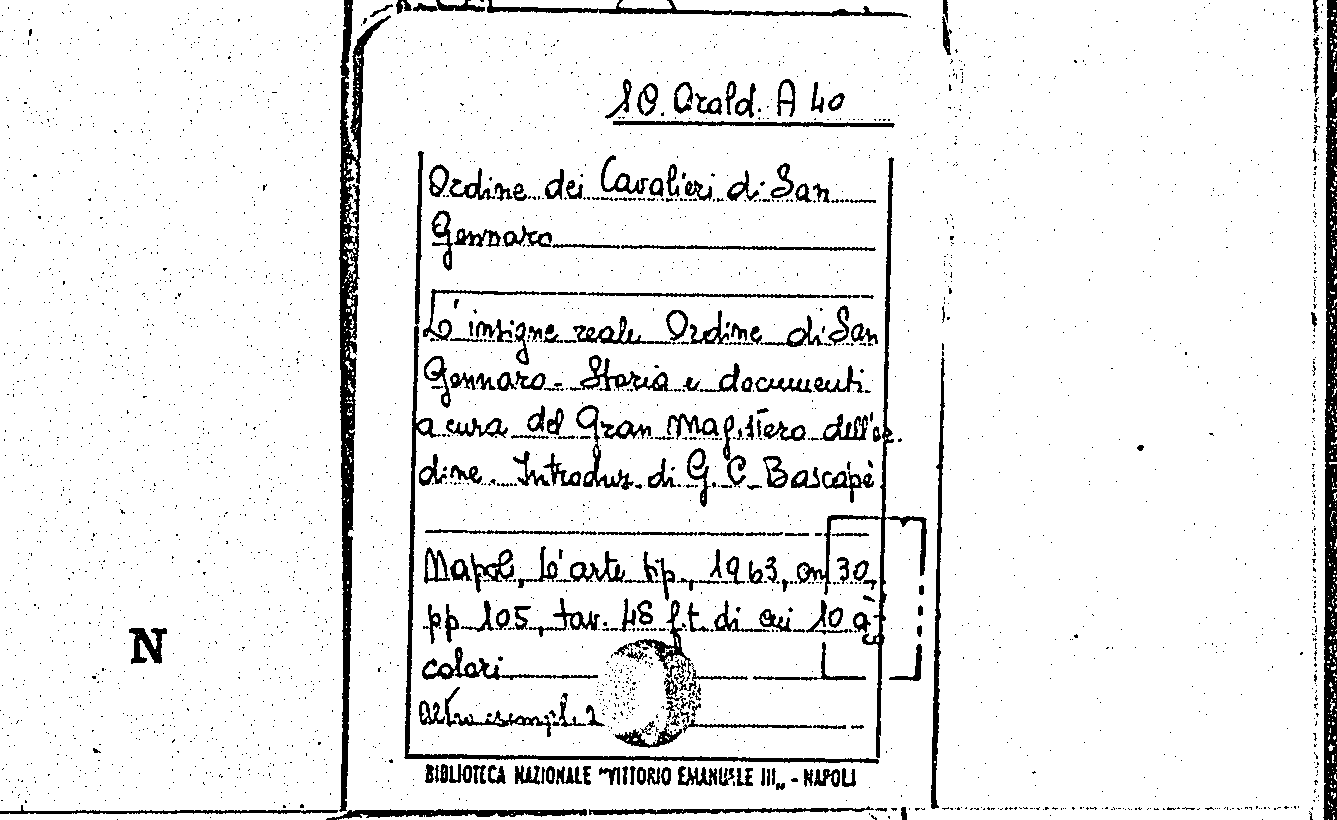 10. Arald. A 40
Ordine dei Cavalieri di San
Gennaro
L'insigne reale Ordine di San
Gennaro - Storia e documenti
a cura del Gran Magistero dell'or-
dine. Introduz. di G. C. Bascapè
Napoli, L'arte tip., 1963, cm 30,
pp 105, tav. 48 f.t. di cui 10 a
colori
altro esempl. 2
N
BIBLIOTECA NAZIONALE "VITTORIO EMANUELE III„ - NAPOLI